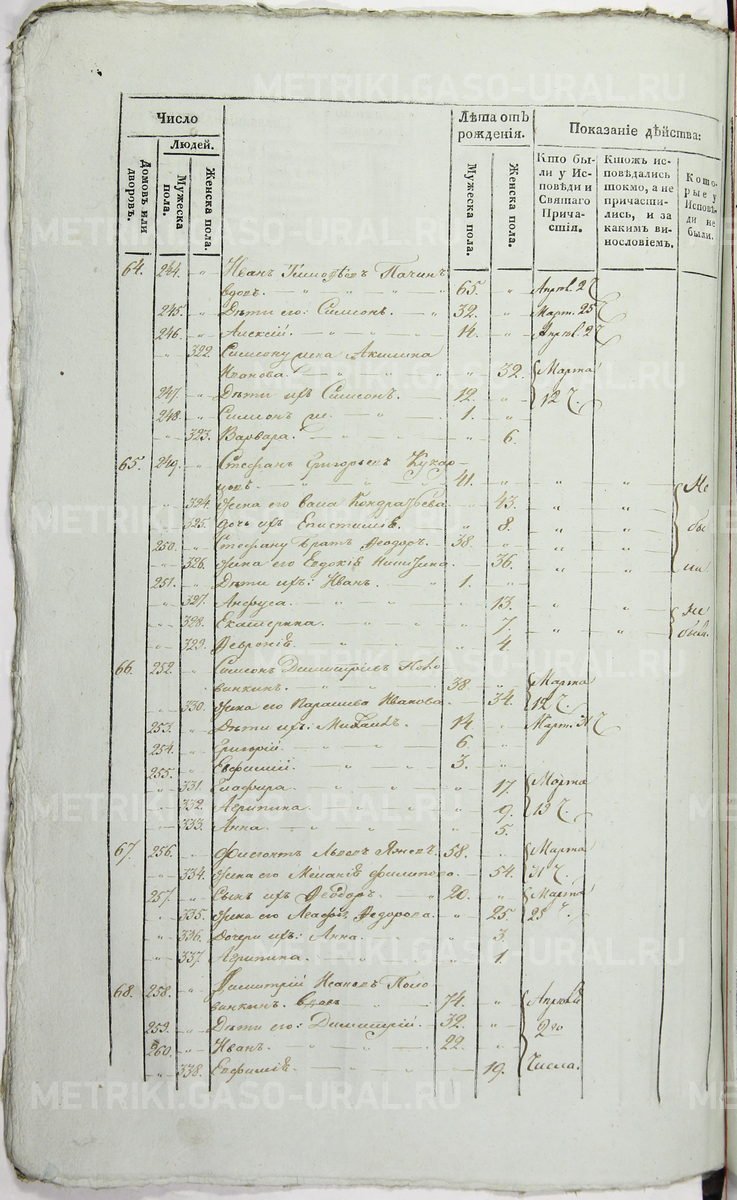 METRIKI.GASO-URAL.RU
Число
Людей.
Домовъ или дворовъ.
Мужеска пола.
Женска пола.
Лѣта отъ рожденія.
Мужеска пола.
Женска пола.
Показаніе дѣйства:
Кто были у Исповѣди и Святаго Причастія.
Ктожъ исповѣдались токмо, а не причастились, и за какимъ винословіемъ.
Которые у Исповѣди не были.
64. 244. „ Иванъ Тимофѣевъ Пачинъ
вдовъ. 65. „ Апрѣл. 2
245. „ Дѣти его: Симеонъ. 32. „ Март. 25
246. „ Алексій. 14. „ Апрѣл. 2
„ 322. Симеону жена Акилина
Иванова. „ 32. Марта
247. „ Дѣти ихъ Симеонъ. 12. „ 12
248. „ Симеонъ же. 1. „
„ 323. Варвара. „ 6.
65. 249. „ Стефанъ Григорьевъ
41. „ „ „ Не
„ 324. Жена его Кондратьева. „ 43. „ „
„ 325. Дочь ихъ Епистимія. „ 8. „ „ бы
250. „ Стефану братъ Ѳеодоръ. 38. „ „ „
„ 326. Жена его Евдокія Никитина. „ 36. „ „ ли
251. „ Дѣти ихъ: Иванъ. 1. „
„ 327. 13. „ „ не
„ 328. Екатерина. „ 7. „ „ были.
„ 329. Февронія. „ 4.
66. 252. „ Симеонъ Димитріевъ Поло
винкинъ. 38. „ Марта
„ 330. Жена его Параскева Иванова. „ 34. 12
253. „ Дѣти ихъ: Михаилъ. 14. „ Март. 31
254. „ Григорій. 6. „
255. „ Евфимій. 3. „
„ 331. Глафира. „ 17. Марта
„ 332. Агрипина. „ 9. 13
„ 333. Анна. „ 5.
67. 256. „ Львовъ 58. „ Марта
„ 334. Жена его Меланія Филипова. „ 54. 31
257. „ Сынъ ихъ Ѳеодоръ. 20. „ Марта
„ 335. Жена его Агафія Ѳедорова. „ 25. 25
„ 336. Дочери ихъ: Анна. „ 3.
„ 337. Агрипина. „ 1.
68. 258. „ Димитрій Ивановъ Поло
винкинъ. вдовъ 74. „ Апрѣля
259. „ Дѣти его: Димитрій. 32. „ 2го
260. „ Иванъ. 22. „
„ 338. Евфимія. „ 19. Числа.